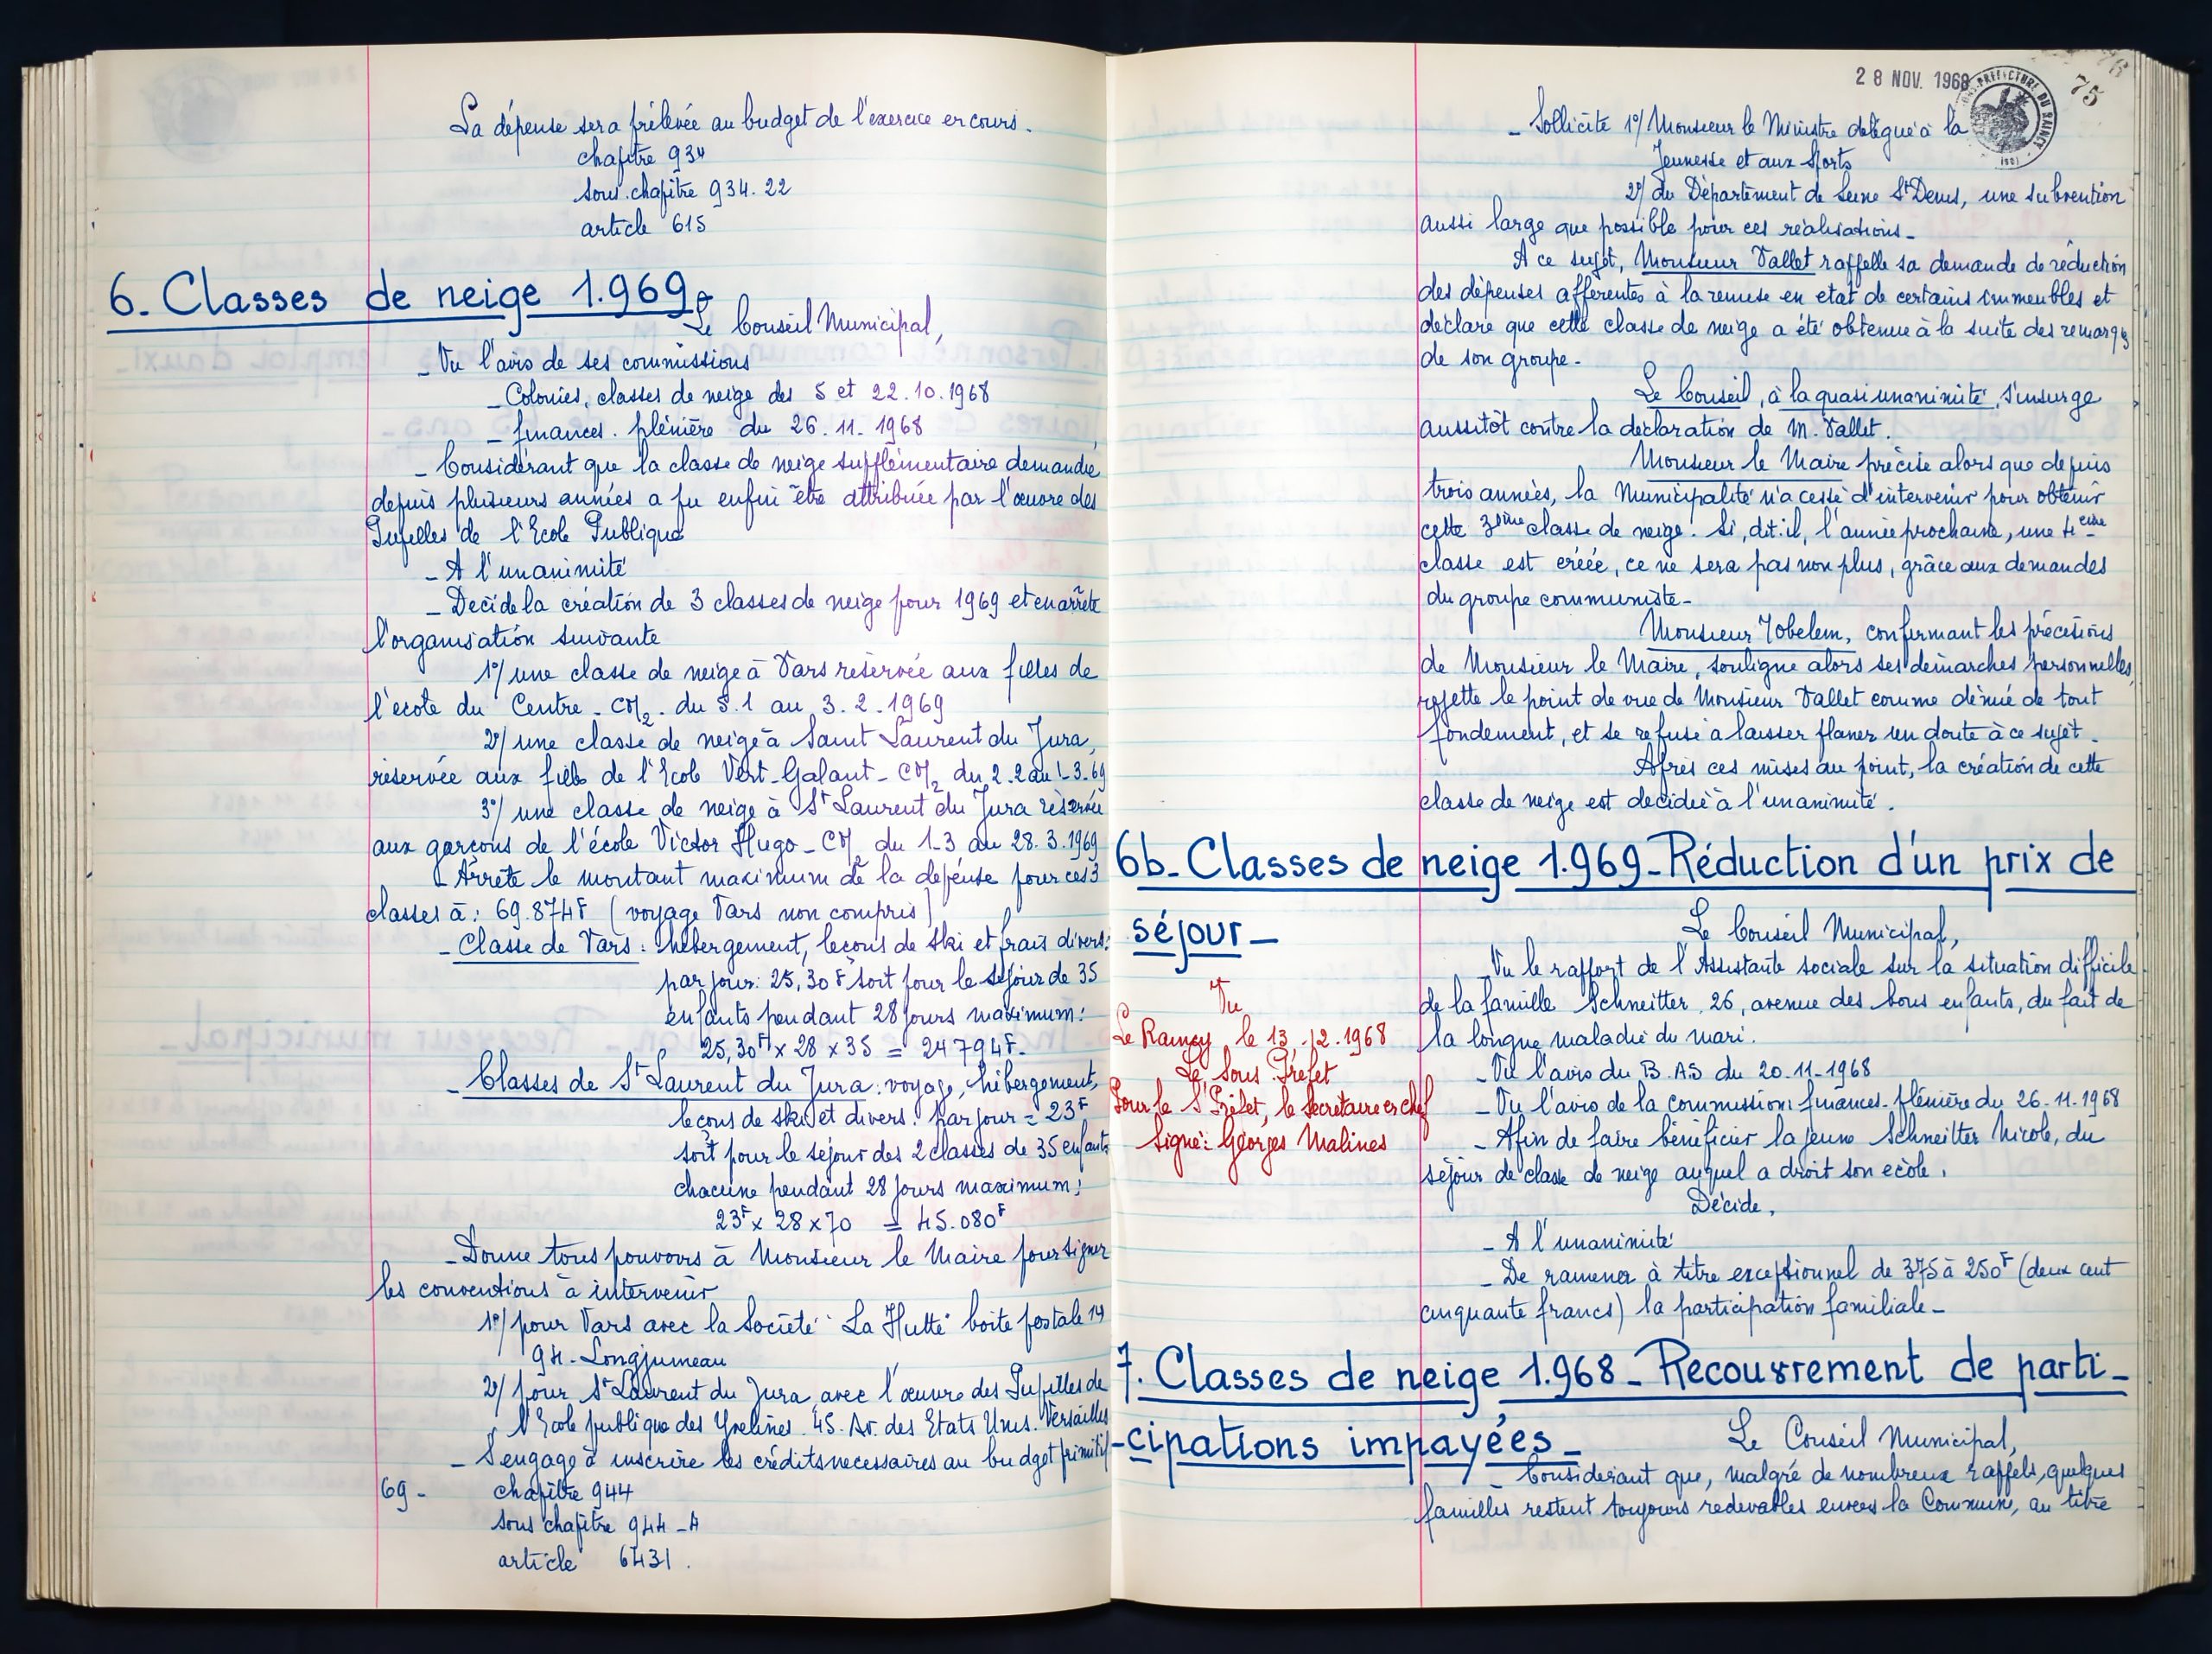 La dépense sera prélevée au budget de l'exercice en cours.
chapitre 934
sous.chapitre 934.22
article 615
6. Classes de neige 1.969.
Le Conseil Municipal,
- Vu l'avis de ses commissions
- Colonies, classes de neige des 5 et 22.10.1968
- finances. plénière du 26.11.1968
- Considérant que la classe de neige supplémentaire demandée
depuis plusieurs années a pu enfin être attribuée par l'œuvre des
Pupilles de l'Ecole Publique
- A l'unanimité
- Décide la création de 3 classes de neige pour 1969 et en arrête
l'organisation suivante
1°/ une classe de neige à Vars réservée aux filles de
l'école du Centre - CM2 - du 5.1 au 3.2.1969
2°/ une classe de neige à Saint Laurent du Jura,
réservée aux filles de l'Ecole Vert-Galant - CM2 du 2.2 au 1-3-69
3°/ une classe de neige à St Laurent du Jura réservée
aux garçons de l'école Victor Hugo - CM2 du 1-3 au 28.3.1969
- Arrête le montant maximum de la dépense pour ces 3
classes à : 69.874F (voyage Vars non compris)
- Classe de Vars : hébergement, leçons de ski et frais divers:
par jour: 25,30F soit pour le séjour de 35
enfants pendant 28 jours maximum:
25,30F x 28 x 35 = 24794F.
- Classes de St Laurent du Jura : voyage, hébergement,
leçons de ski et divers. par jour = 23F
soit pour le séjour des 2 classes de 35 enfants
chacune pendant 28 jours maximum:
23F x 28 x 70 = 45.080F
- Donne tous pouvoirs à Monsieur le Maire pour signer
les conventions à intervenir
1°/ pour Vars avec la Société La Hutte boite postale 14
94-Longjumeau
2°/ pour St Laurent du Jura, avec l'œuvre des Pupilles de
l'Ecole publique des Yvelines. 45. Av. des Etats Unis. Versailles
- S'engage à inscrire les crédits nécessaires au budget primitif
69 - chapitre 944
sous chapitre 944-4
article 6431.
28 NOV. 1968
75
SOUS-PRÉFECTURE DU RAINCY
- Sollicite 1°/ Monsieur le Ministre délégué à la
Jeunesse et aux Sports
2°/ du Département de Seine St Denis, une subvention
aussi large que possible pour ces réalisations-
A ce sujet, Monsieur Vallet rappelle sa demande de réduction
des dépenses afférentes à la remise en état de certains immeubles et
déclare que cette classe de neige a été obtenue à la suite des remarques
de son groupe.
Le Conseil, à la quasi unanimité, s'insurge
aussitôt contre la déclaration de M. Vallet.
Monsieur le Maire précise alors que depuis
trois années, la Municipalité n'a cessé d'intervenir pour obtenir
cette 3ème classe de neige. Si, dit-il, l'année prochaine, une 4ème
classe est créée, ce ne sera pas non plus, grâce aux demandes
du groupe communiste-
Monsieur Yobelem, confirmant les précisions
de Monsieur le Maire, souligne alors ses démarches personnelles,
rejette le point de vue de Monsieur Vallet comme dénué de tout
fondement, et se refuse à laisser planer un doute à ce sujet.
Après ces mises au point, la création de cette
classe de neige est décidée à l'unanimité.
6b- Classes de neige 1.969- Réduction d'un prix de
séjour-
Le Conseil Municipal,
- Vu le rapport de l'Assistante sociale sur la situation difficile
de la famille Schneitter, 26, avenue des bons enfants, du fait de
la longue maladie du mari.
- Vu l'avis du B.AS du 20-11-1968
- Vu l'avis de la commission finances-plénière du 26-11-1968
- Afin de faire bénéficier la jeune Schneitter Nicole, du
séjour de classe de neige auquel a droit son école.
Décide,
- A l'unanimité
- De ramener à titre exceptionnel de 375 à 250F (deux cent
cinquante francs) la participation familiale-
Vu
Le Raincy, le 13.12.1968
Le Sous Préfet
Pour le S/Préfet, le Secrétaire en chef
Signé: Georges Malines
7. Classes de neige 1.968- Recouvrement de parti-
-cipations impayées-
Le Conseil Municipal,
- Considérant que, malgré de nombreux rappels, quelques
familles restent toujours redevables envers la Commune, au titre